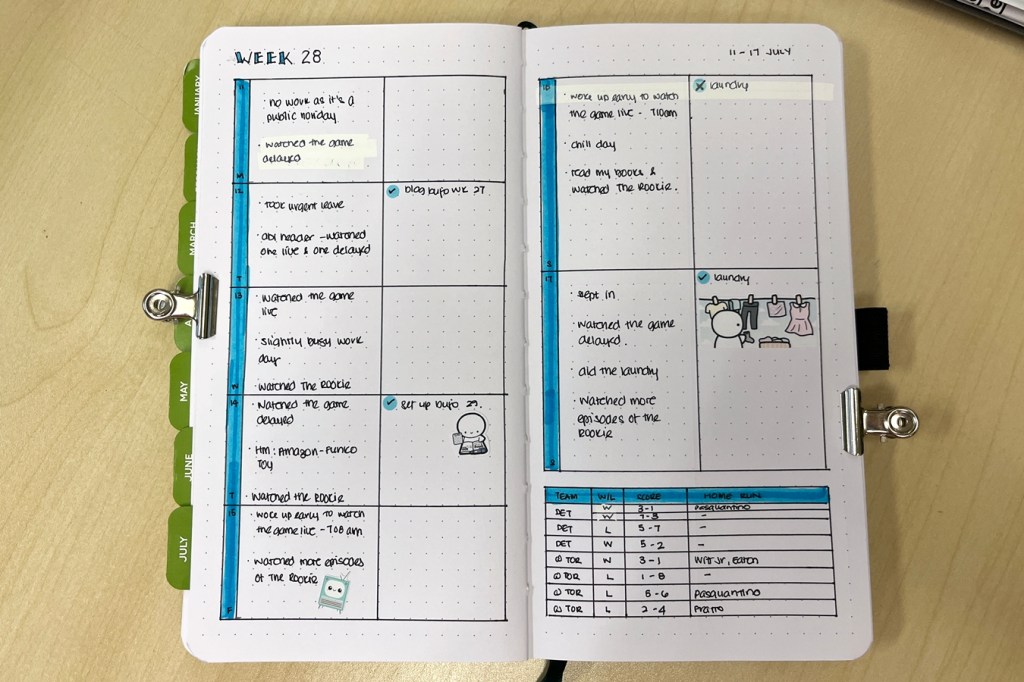 WEEK 28
11 - 17 JULY
JANUARY
MARCH
A
MAY
JUNE
JULY
11
· no work as it's a
public holiday
· watched the game
delayed
M
12
· took urgent leave
· dbl header - watched
one live & one delayed
T
blog bujo wk 27.
13
· watched the game
live
· slightly busy work
day
· watched The Rookie
W
14
· watched the game
delayed
· HM: Amazon - Funko
Toy
· watched the Rookie
T
set up bujo 29.
15
· woke up early to watch
the game live - 708 am
· watched more episodes
of The Rookie
F
· woke up early to watch
the game live - 710am
· chill day
· read my books &
watched The Rookie.
S
laundry
17
· slept in
· watched the game
delayed.
· did the laundry
· watched more
episodes of the
Rookie
S
laundry
TEAM W/L SCORE HOME RUN
DET W 3-1 Pasquantino
W 7-3 -
DET L 5-7 -
DET W 5-2 -
@ TOR W 3-1 Witt Jr, Eaton
@ TOR L 1-8 -
@ TOR L 5-6 Pasquantino
@ TOR L 2-4 Pratto